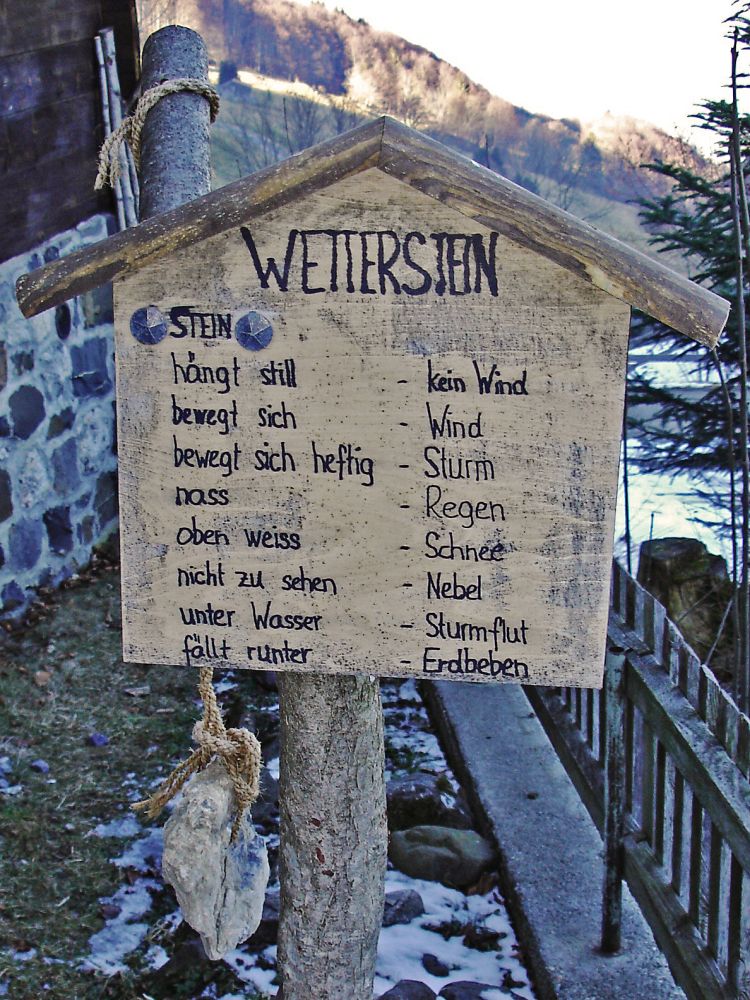 WETTERSTEIN
STEIN
hängt still - kein Wind
bewegt sich - Wind
bewegt sich heftig - Sturm
nass - Regen
oben weiss - Schnee
nicht zu sehen - Nebel
unter Wasser - Sturmflut
fällt runter - Erdbeben